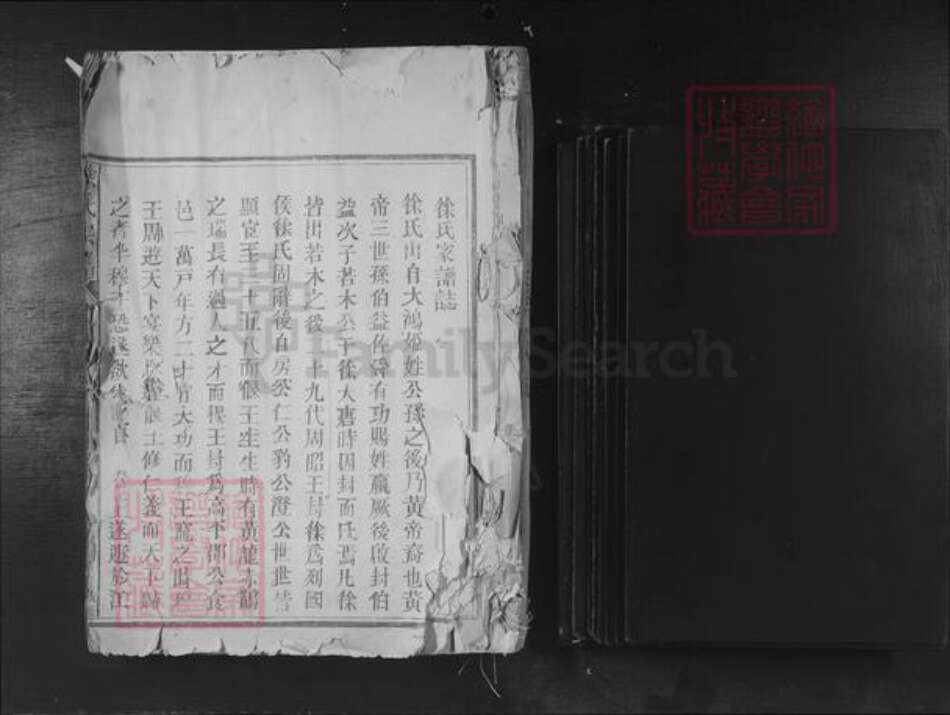 徐氏家譜誌
徐氏出自大鴻姬姓公孫之後乃黃帝裔也黃
帝三世孫伯益佐舜有功賜姓嬴厥後啟封伯
益次子若木公于徐大唐時因封而氏焉凡徐
皆出若木之後二十九代周昭王封徐為列國
侯徐氏固爵後自房公仁公豹公澄公世世皆
顯官至三十五代而偃王生生時有黃龍赤鵲
之瑞長有過人之才而穆王封為高平郡公食
邑一萬戶年方二十有大功而穆王寵之時穆
王周遊天下宴樂 偃王修仁義而天下歸
之者半穆王恐遂欲 遂遊於江
FamilySearch